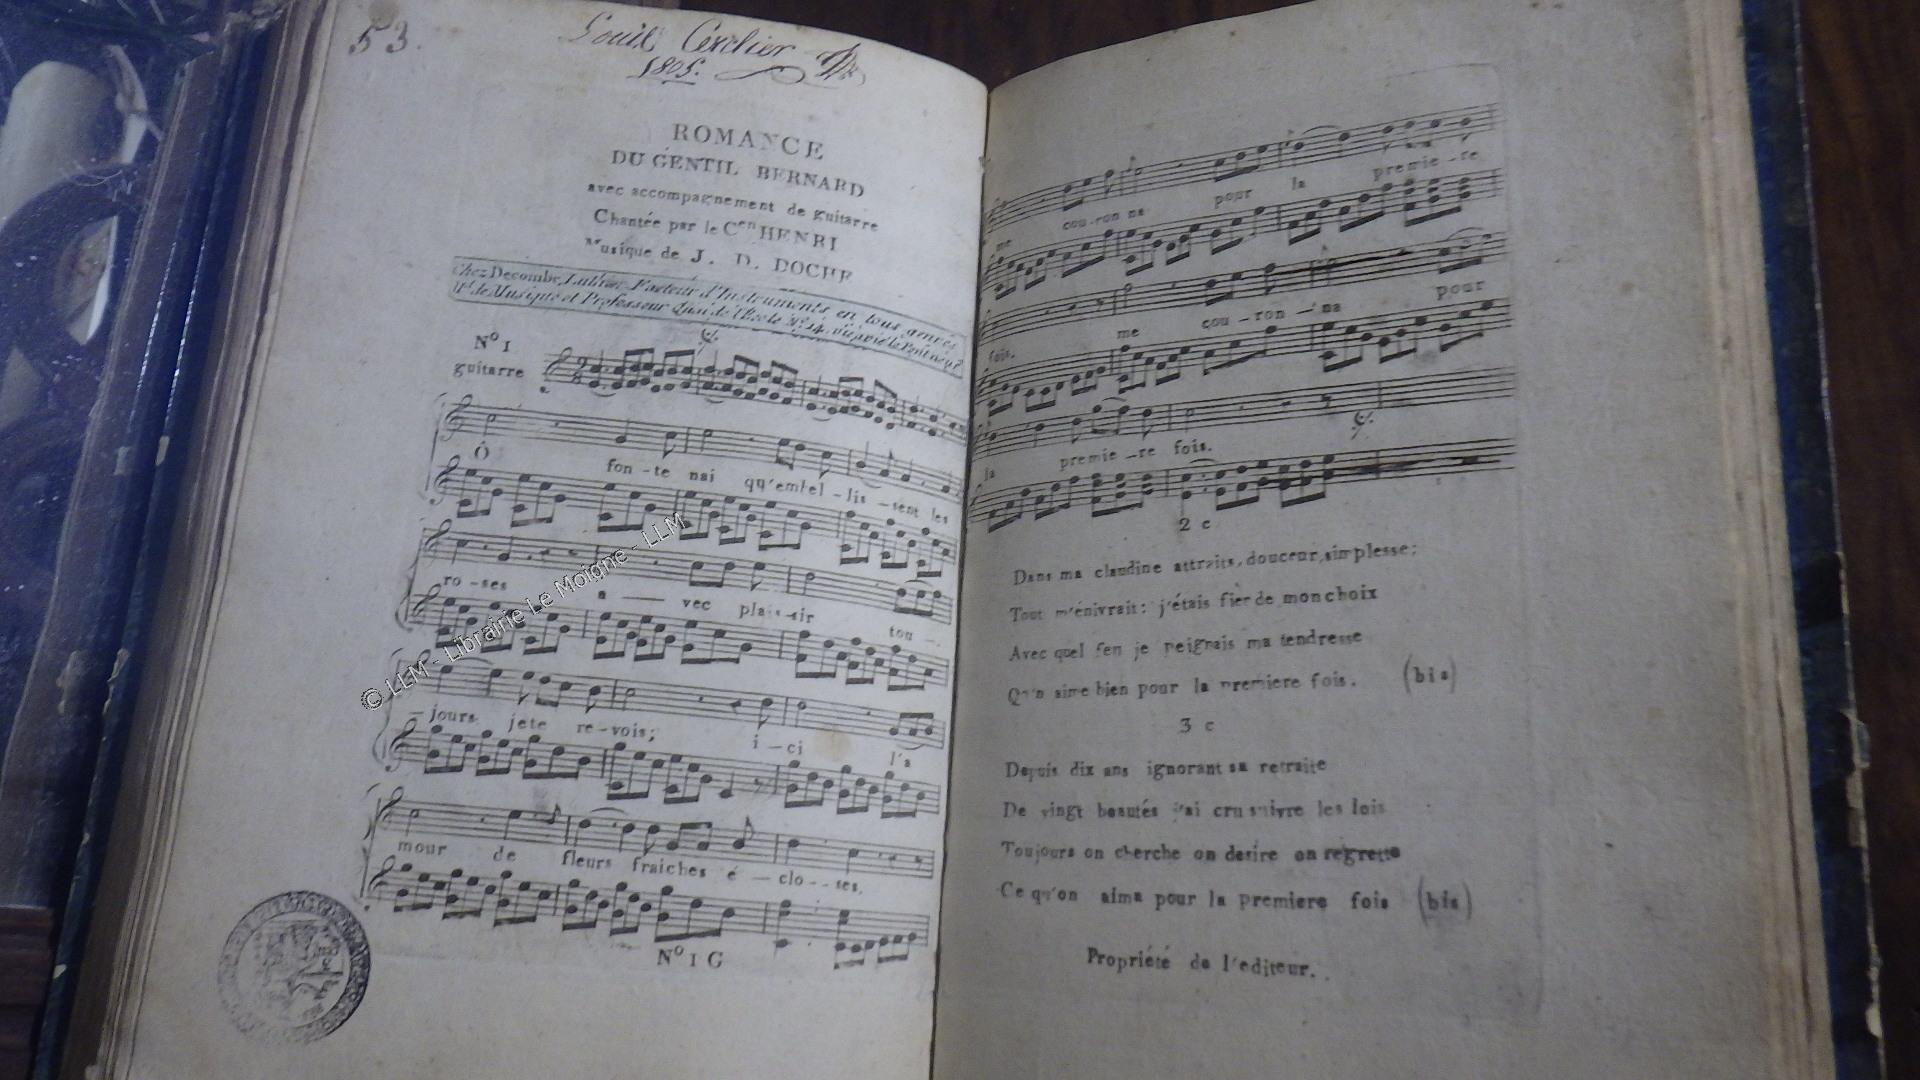 53.
Louis Cerclier
1805.
ROMANCE
DU GENTIL BERNARD
avec accompagnement de guitarre
Chantée par le Cen HENRI
Musique de J. D. DOCHE
Chez Decombe, Luthier, Facteur d'Instruments en tous genres
Md. de Musique et Professeur Quai de l'Ecole No. 14, vis-à-vis le Pont neuf
No 1
guitarre
Ô fon-te nai qu'embel-lis-sent les
ro-ses a-vec plai-sir tou-
-jours je te re-vois; i-ci l'a
mour de fleurs fraiches é-clo--ses,
No 1 G
me cou-ron na pour la premie-re
fois. me cou-ron-na pour
la premie-re fois.
2 e
Dans ma claudine attraits, douceur, simplesse;
Tout m'énivrait: j'étais fier de mon choix
Avec quel feu je peignais ma tendresse
Qu'n aime bien pour la premiere fois. (bis)
3 e
Depuis dix ans ignorant sa retraite
De vingt beautés j'ai cru suivre les lois
Toujours on cherche on desire on regrette
Ce qu'on aima pour la premiere fois (bis)
Propriété de l'editeur.
© LLM - Librairie Le Moigne - LLM